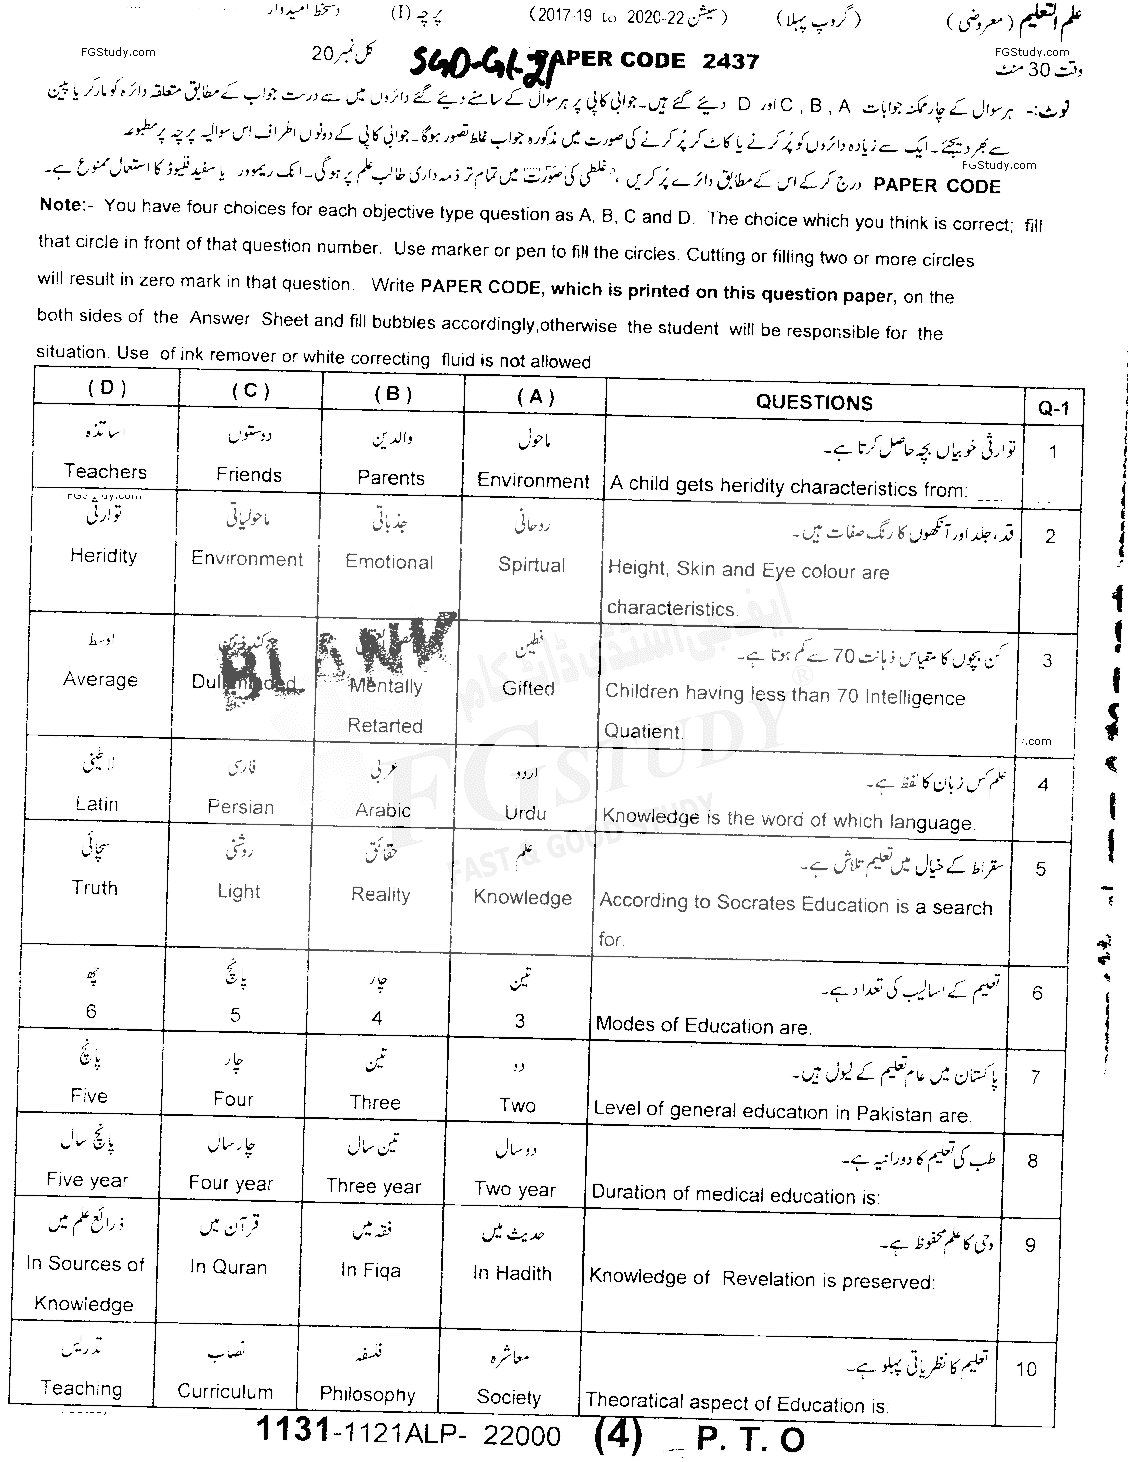 علم التعلیم (معروضی) (گروپ پہلا) (سیشن 2020-22 to 2017-19) پرچہ (I) دستخط امیدوار
FGStudy.com
وقت 30 منٹ PAPER CODE 2437 SGD-G1-21 کل نمبر 20
FGStudy.com
نوٹ:- ہر سوال کے چار ممکنہ جوابات A , B , C اور D دیئے گئے ہیں۔ جوابی کاپی پر ہر سوال کے سامنے دیئے گئے دائروں میں سے درست جواب کے مطابق متعلقہ دائرہ کو مارکر یا پین
سے بھر دیجئے۔ ایک سے زیادہ دائروں کو پُر کرنے یا کاٹ کر پُر کرنے کی صورت میں مذکورہ جواب غلط تصور ہوگا۔ جوابی کاپی کے دونوں اطراف اس سوالیہ پرچہ پر مطبوعہ
FGStudy.com
PAPER CODE درج کر کے اس کے مطابق دائرے پُر کریں ، غلطی کی صورت میں تمام تر ذمہ داری طالب علم پر ہوگی۔ انک ریموور یا سفید فلیوڈ کا استعمال ممنوع ہے۔
Note:- You have four choices for each objective type question as A, B, C and D. The choice which you think is correct; fill
that circle in front of that question number. Use marker or pen to fill the circles. Cutting or filling two or more circles
will result in zero mark in that question. Write PAPER CODE, which is printed on this question paper, on the
both sides of the Answer Sheet and fill bubbles accordingly,otherwise the student will be responsible for the
situation. Use of ink remover or white correcting fluid is not allowed
( D ) ( C ) ( B ) ( A ) QUESTIONS Q-1
اساتذہ دوستوں والدین ماحول توارثی خوبیاں بچہ حاصل کرتا ہے۔ 1
Teachers Friends Parents Environment A child gets heridity characteristics from: ....
FGStudy.com
توارثی ماحولیاتی جذباتی روحانی قد، جلد اور آنکھوں کا رنگ صفات ہیں۔ 2
Heridity Environment Emotional Spirtual Height, Skin and Eye colour are
characteristics.
اوسط کند ذہن فطین کن بچوں کا مقیاس ذہانت 70 سے کم ہوتا ہے۔ 3
BLANK
Average Dull minded Mentally Gifted Children having less than 70 Intelligence
Retarted Quatient.
.com
ایف جی اسٹڈی ڈاٹ کام
FGSTUDY ®
FAST & GOOD STUDY
لاطینی فارسی عربی اردو علم کس زبان کا لفظ ہے۔ 4
Latin Persian Arabic Urdu Knowledge is the word of which language.
سچائی روشنی حقائق علم سقراط کے خیال میں تعلیم تلاش ہے۔ 5
Truth Light Reality Knowledge According to Socrates Education is a search
for.
چھ پانچ چار تین تعلیم کے اسالیب کی تعداد ہے۔ 6
6 5 4 3 Modes of Education are.
پانچ چار تین دو پاکستان میں عام تعلیم کے لیول ہیں۔ 7
Five Four Three Two Level of general education in Pakistan are.
پانچ سال چار سال تین سال دو سال طب کی تعلیم کا دورانیہ ہے۔ 8
Five year Four year Three year Two year Duration of medical education is:
ذرائع علم میں قرآن میں فقہ میں حدیث میں وحی کا علم محفوظ ہے۔ 9
In Sources of In Quran In Fiqa In Hadith Knowledge of Revelation is preserved:
Knowledge
تدریس نصاب فلسفہ معاشرہ تعلیم کا نظریاتی پہلو ہے۔ 10
Teaching Curriculum Philosophy Society Theoratical aspect of Education is.
1131-1121ALP- 22000 (4) P. T. O